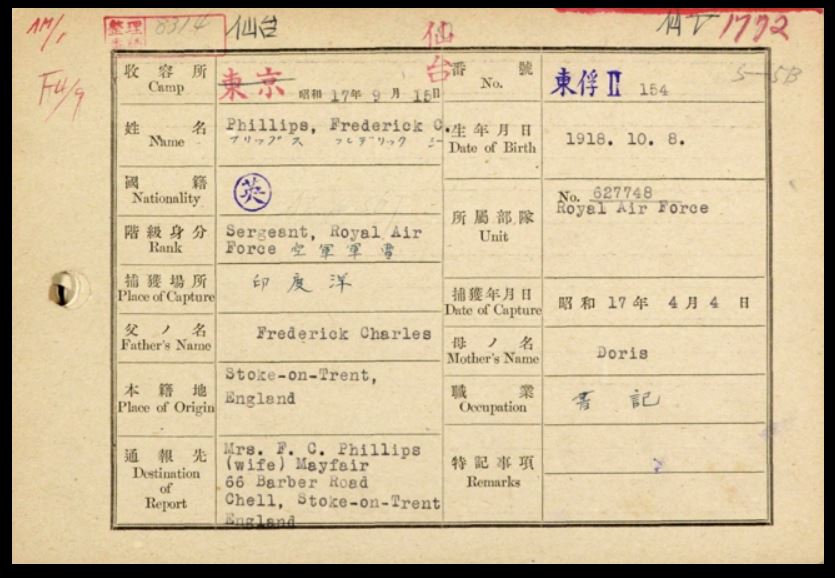 AM/1 整理 8314 仙台 仙 1772
F4/9
收容所 東京 仙台 番號 東俘 II 154 5-5B
Camp 昭和 17年 9月 15日 No.
姓名 Phillips, Frederick C. 生年月日 1918. 10. 8.
Name フリップス フレデリック シー Date of Birth
國籍 英
Nationality
No. 627748
Royal Air Force
所屬部隊
Unit
階級身分 Sergeant, Royal Air
Rank Force 空軍軍曹
捕獲場所 印度洋 捕獲年月日 昭和 17年 4月 4日
Place of Capture Date of Capture
父ノ名 Frederick Charles 母ノ名 Doris
Father's Name Mother's Name
本籍地 Stoke-on-Trent,
Place of Origin England
職業 書記
Occupation
通報先 Mrs. F. C. Phillips
Destination (wife) Mayfair
of 66 Barber Road
Report Chell, Stoke-on-Trent
England
特記事項
Remarks